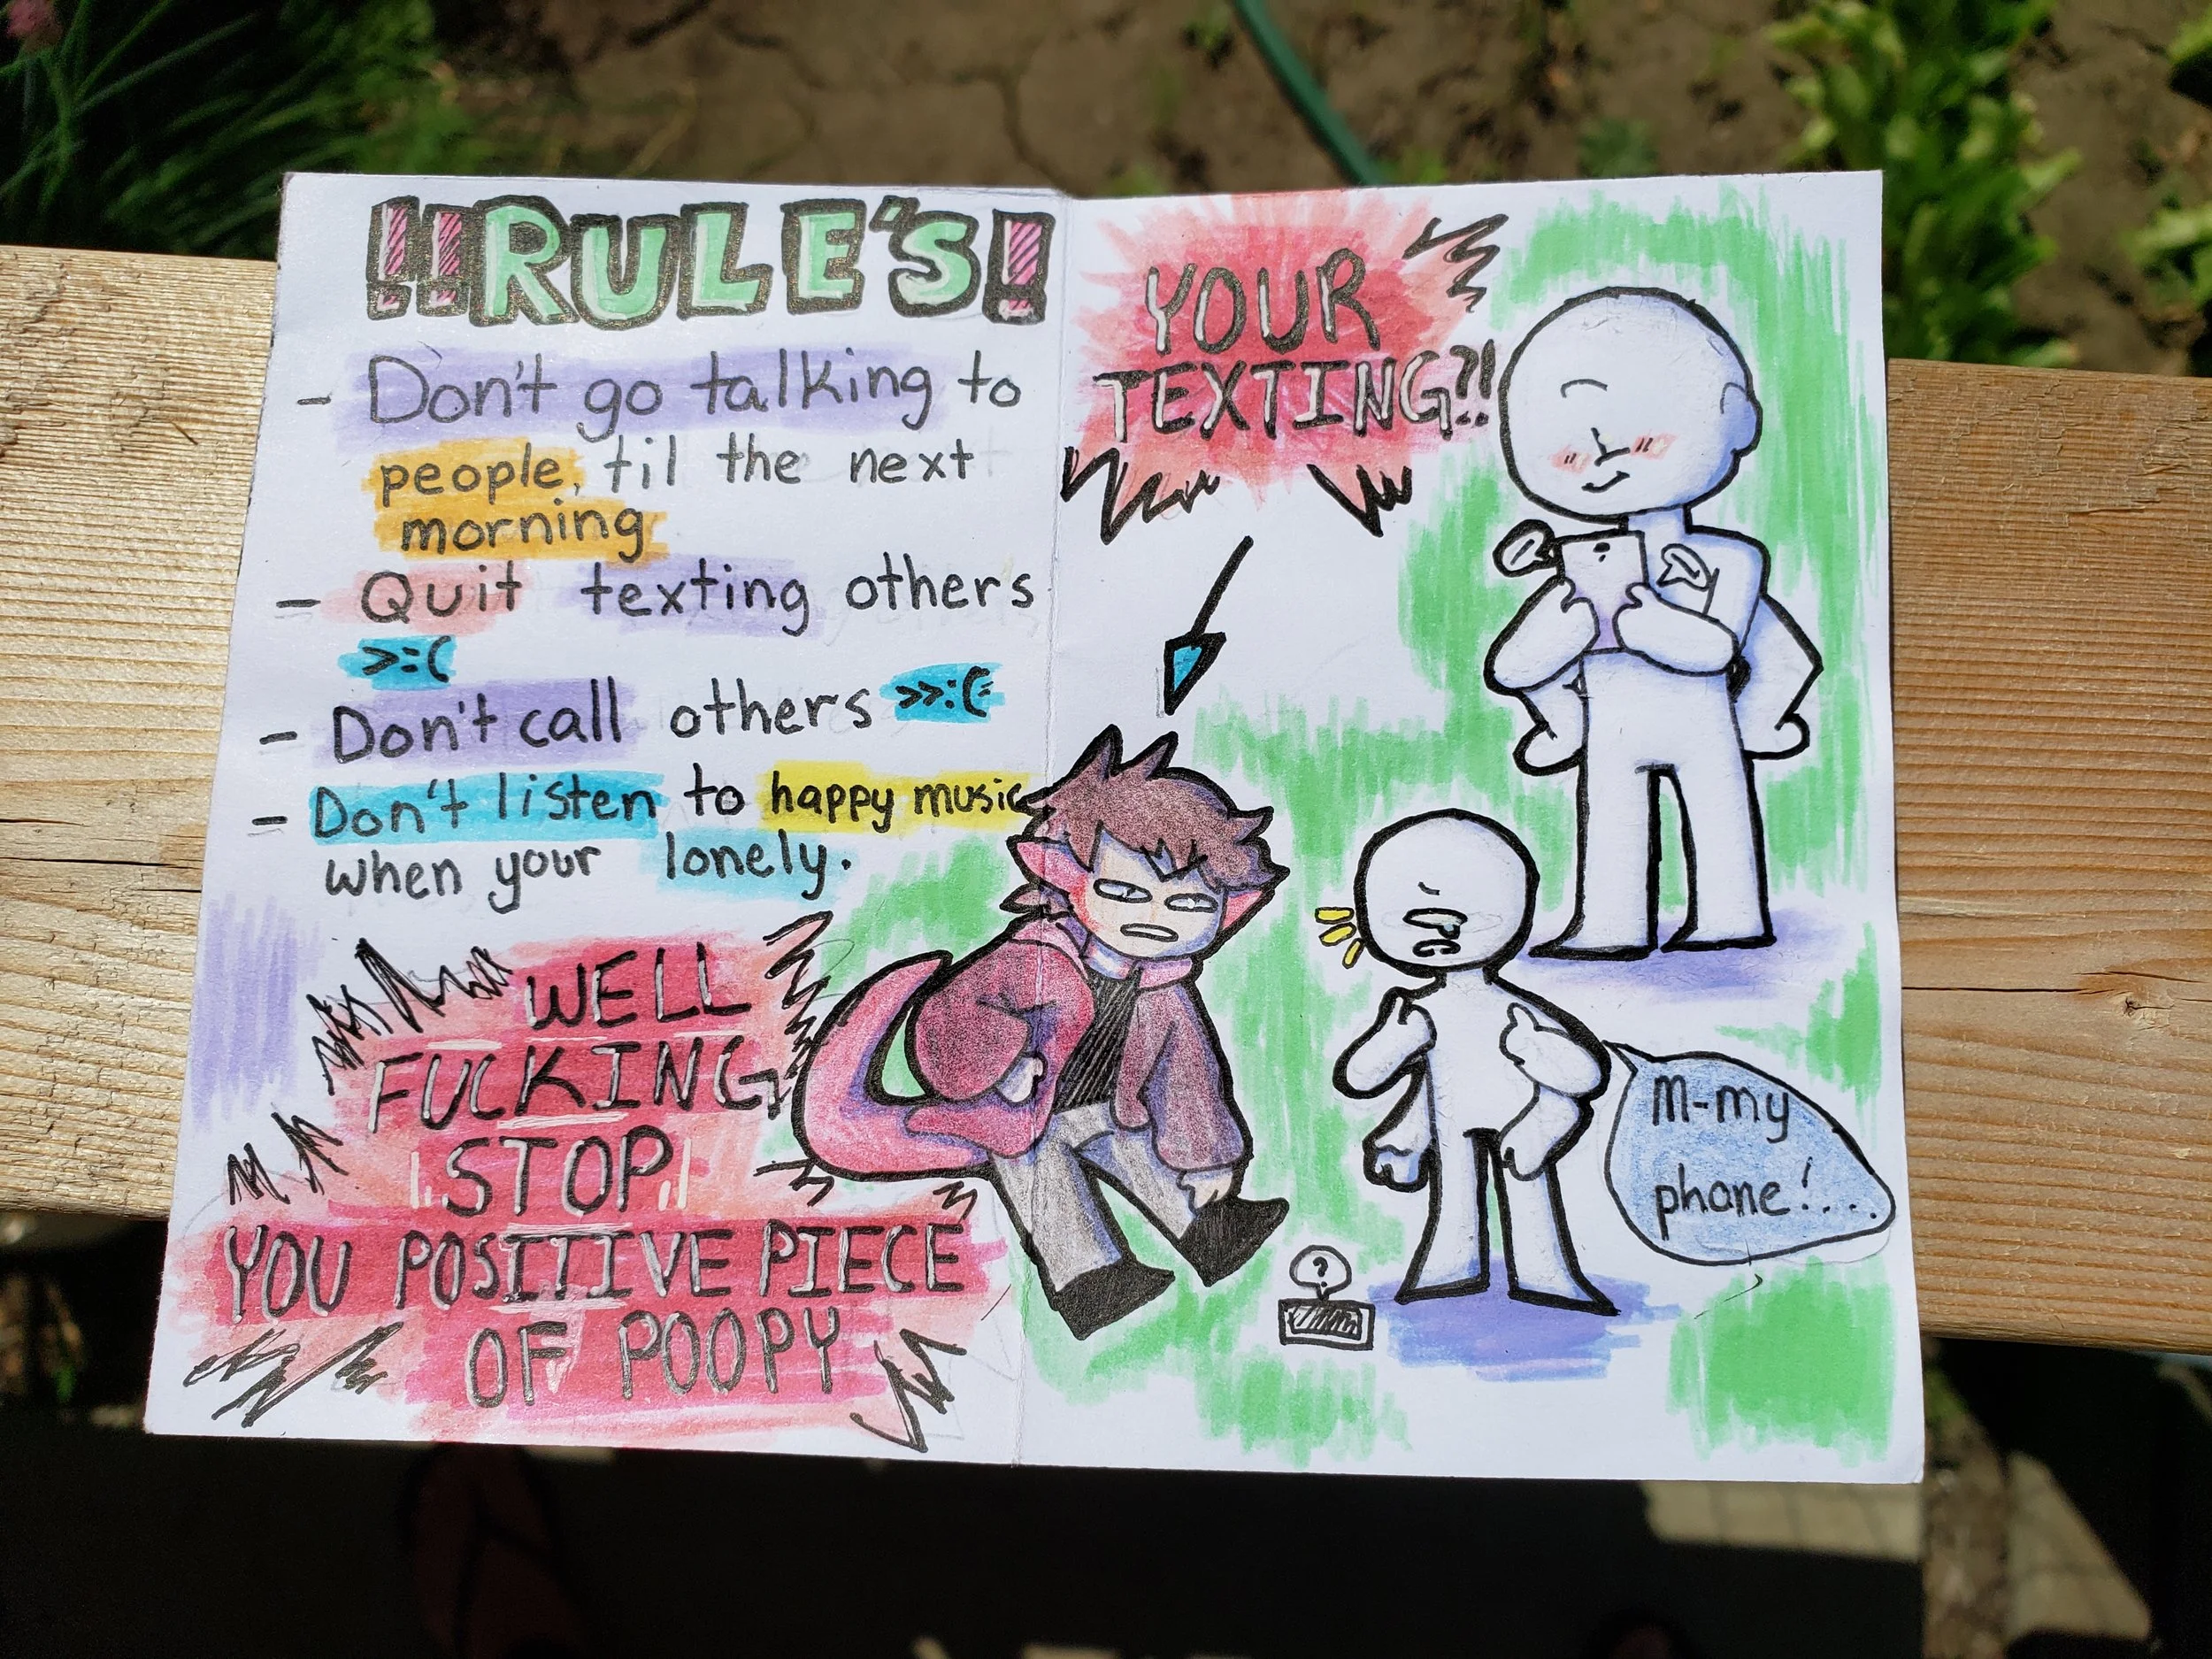 !!RULE'S!
- Don't go talking to
people, til the next
morning
- Quit texting others
>:(
- Don't call others >>:(
- Don't listen to happy music
when your lonely.
WELL
FUCKING
STOP
YOU POSITIVE PIECE
OF POOPY
YOUR
TEXTING?!
M-my
phone!....
?